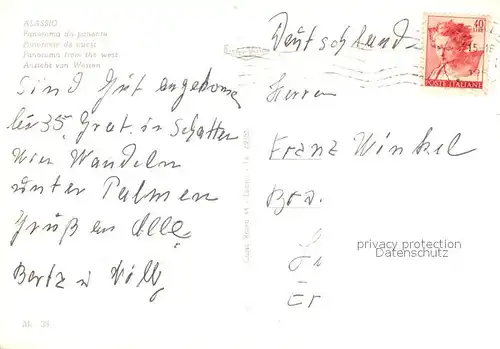 ALASSIO
Panorama da ponente
Panorama de ouest
Panorama from the west
Ansicht van Westen
Sind Gut angekomme
bis 35 Grat. in Schatten
Wir Wandeln
unter Palmen
Gruß an Alle
Berta u Willy
31 35
Deutschland
40
POSTE ITALIANE
Herrn
Franz Winkel
privacy protection
Datenschutz